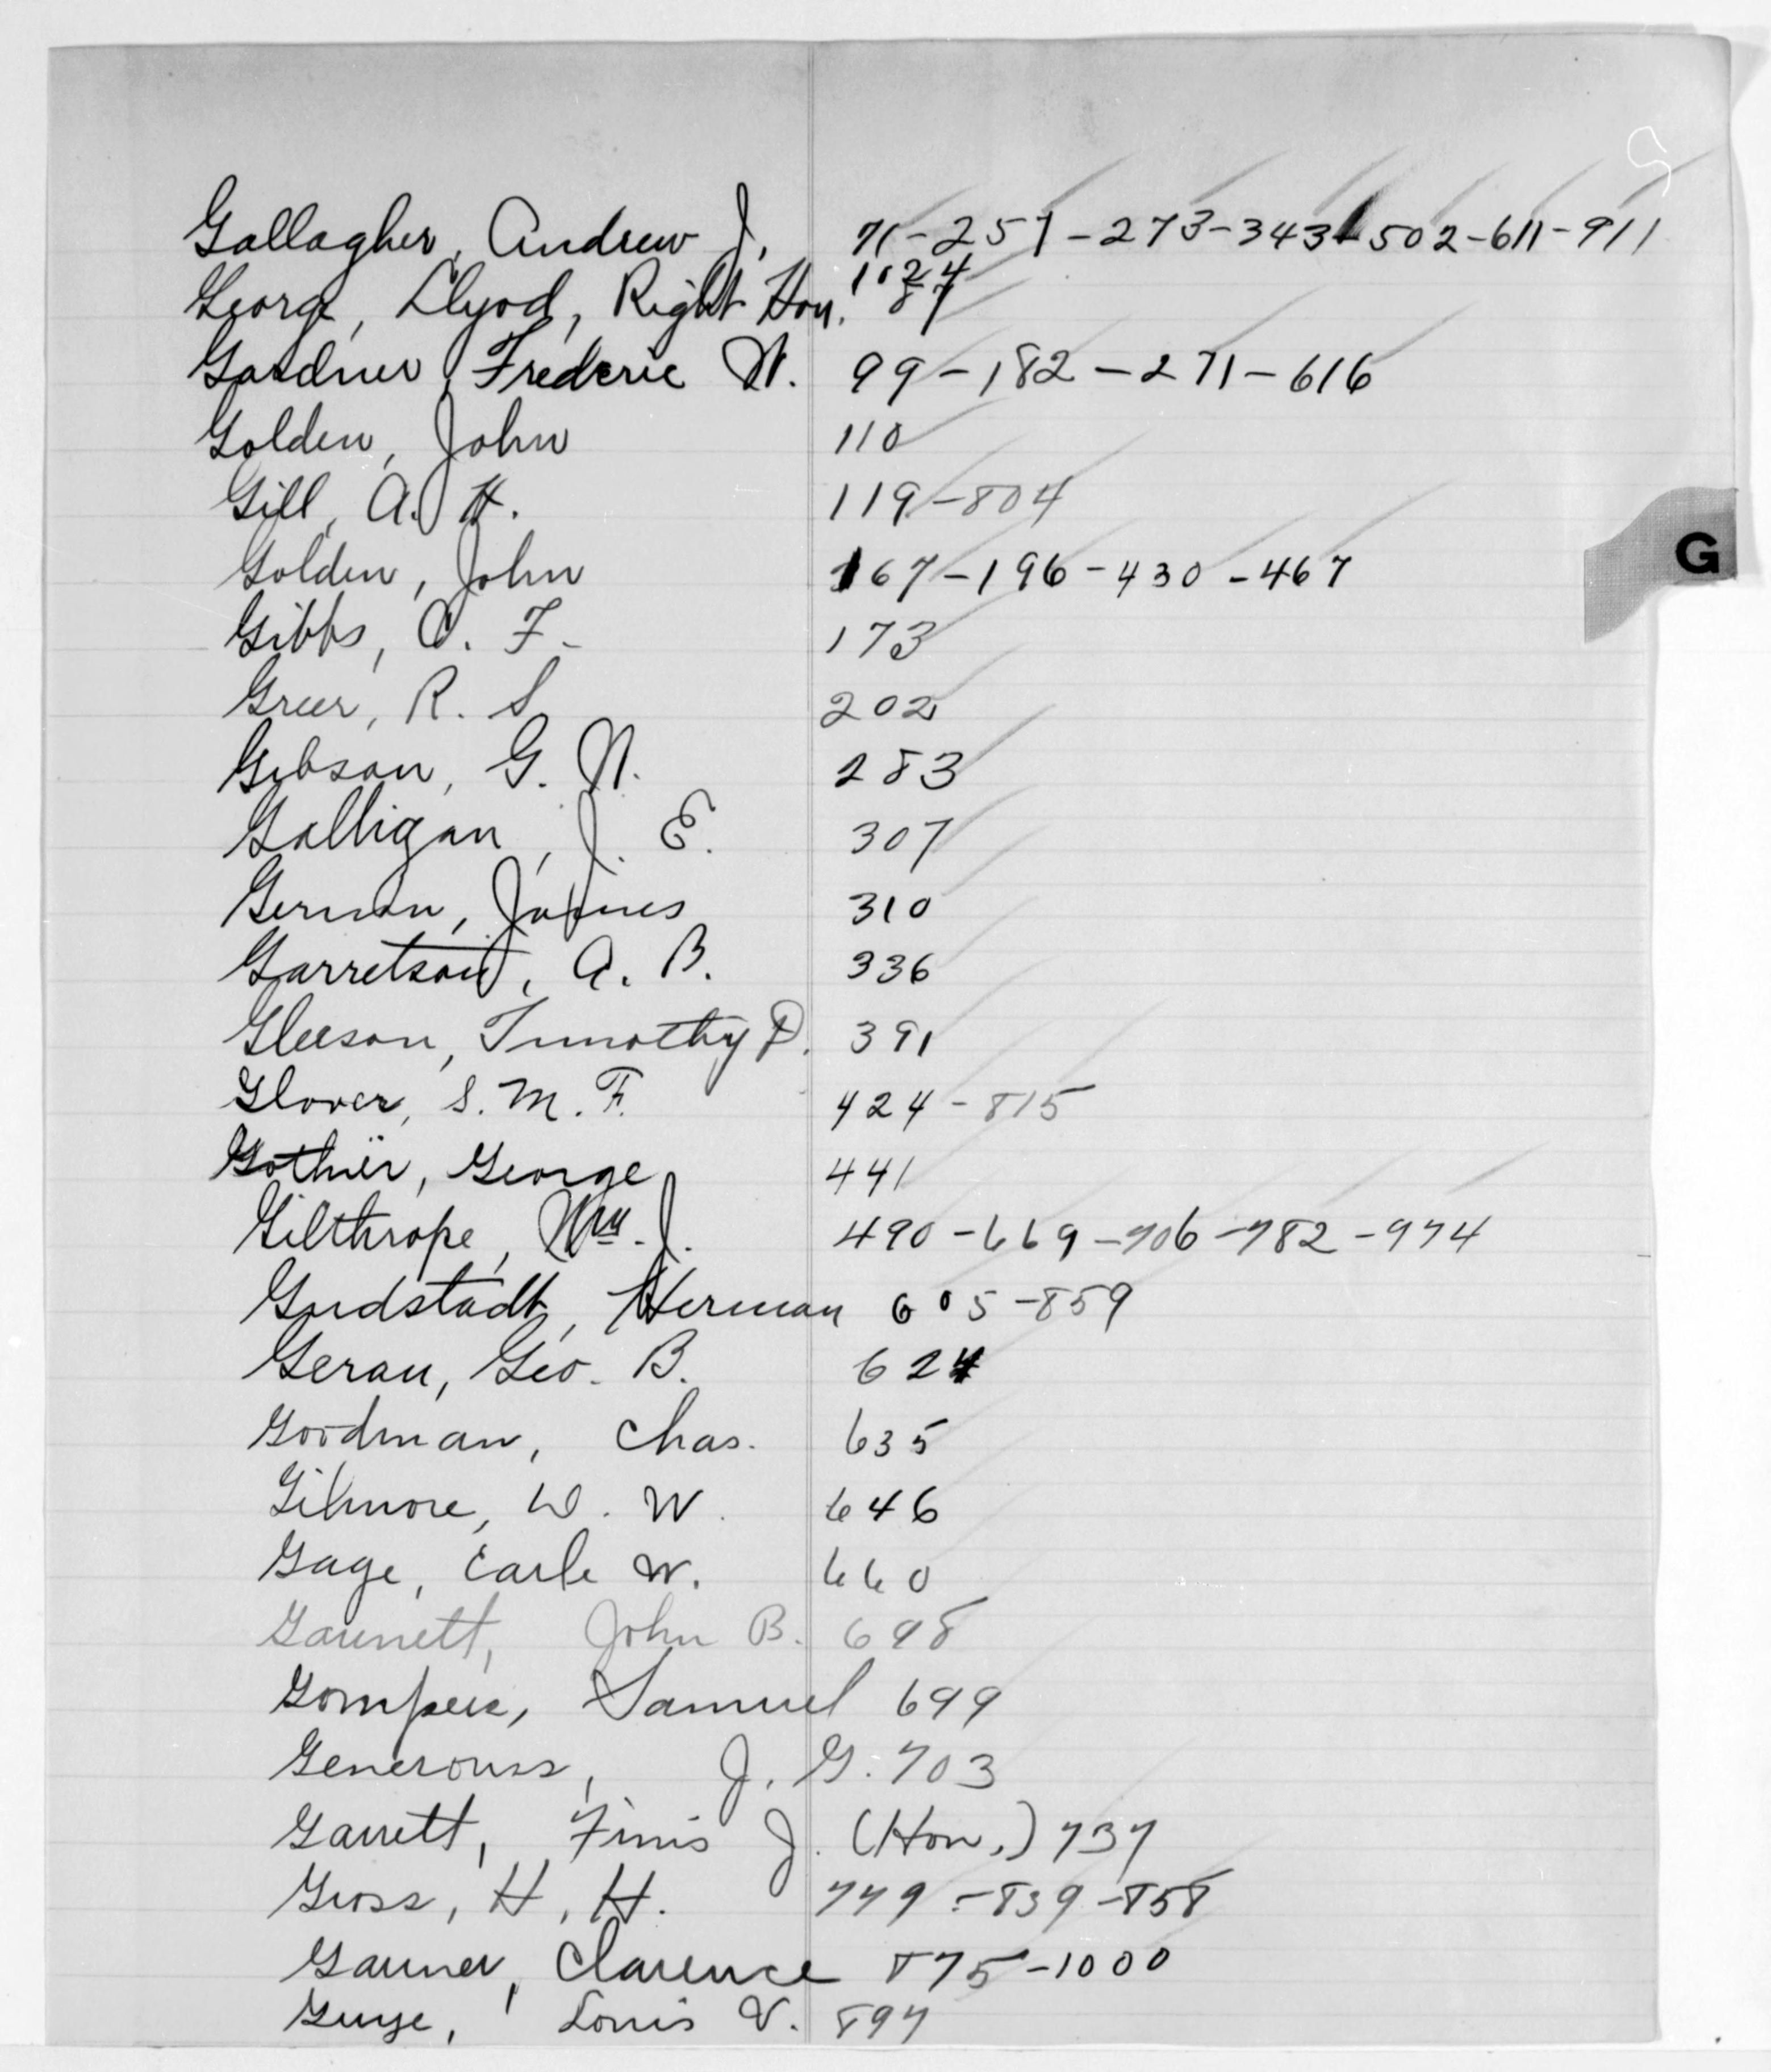 Gallagher, Andrew J. 71-257-273-343-502-611-911
1024
George, Llyod, Right Hon. 87
Gardner, Frederic W. 99-182-271-616
Golden, John 110
Gill, A. H. 119-804
Golden, John 167-196-430-467
Gibbs, C. F. 173
Greer, R. S. 202
Gibson, G. W. 283
Galligan, J. E. 307
German, James 310
Garretson, A. B. 336
Gleeson, Timothy D. 391
Glover, S. M. F. 424-815
Gothier, George 441
Gilthrope, Wm. J. 490-669-706-782-974
Grudstadt, Herman 605-859
Gerau, Geo. B. 624
Goodman, Chas. 635
Gilmore, W. W. 646
Gage, Earle W. 660
Gaunett, John B. 698
Gompers, Samuel 699
Generouss, J. G. 703
Garrett, Finis J. (Hon.) 737
Gross, H. H. 749-839-858
Garner, Clarence 875-1000
Guye, Louis V. 897
G